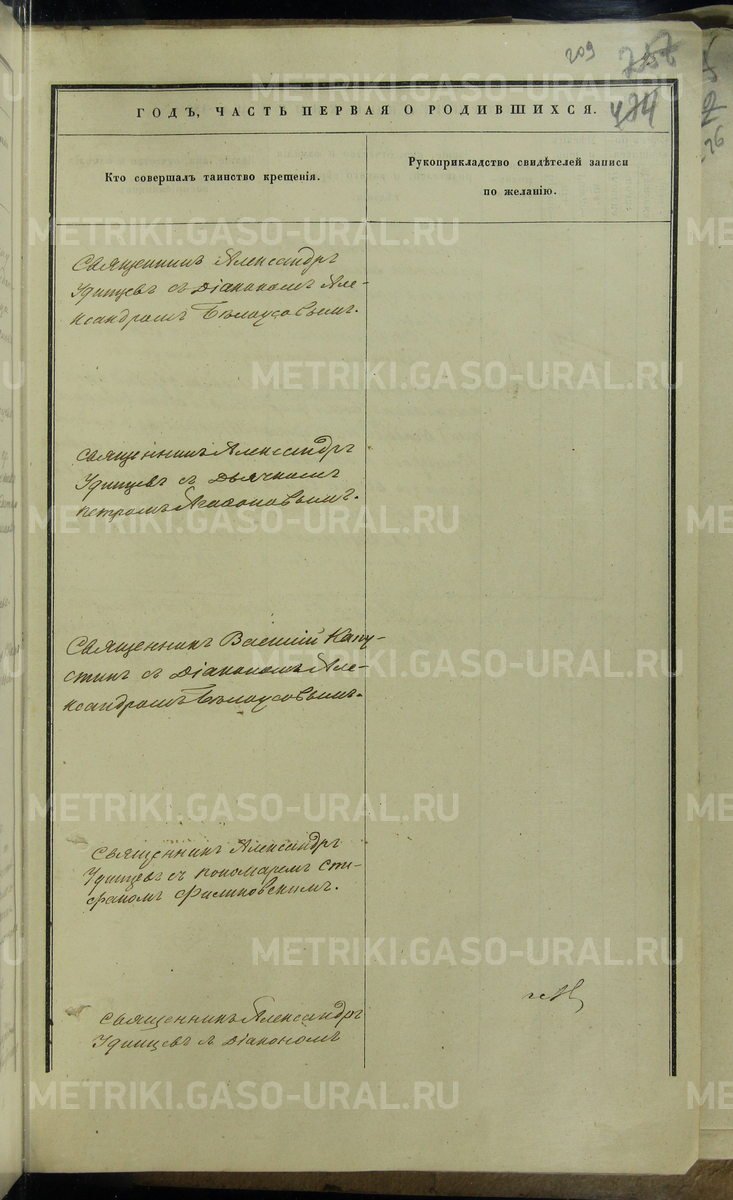 209
757
484
ГОДЪ, ЧАСТЬ ПЕРВАЯ О РОДИВШИХСЯ.
Кто совершалъ таинство крещенія.
Рукоприкладство свидѣтелей записи
по желанію.
Священникъ Александръ
Удинцевъ съ Діакономъ Але-
ксандромъ Бѣлоусовымъ.
Священникъ Александръ
Удинцевъ съ Дьячкомъ
Петромъ Агафоновымъ.
Священникъ Василій Капу-
стинъ съ Діакономъ Але-
ксандромъ Бѣлоусовымъ.
Священникъ Александръ
Удинцевъ съ пономаремъ Сте-
фаномъ Филиповскимъ.
Священникъ Александръ
Удинцевъ съ Діакономъ
METRIKI.GASO-URAL.RU